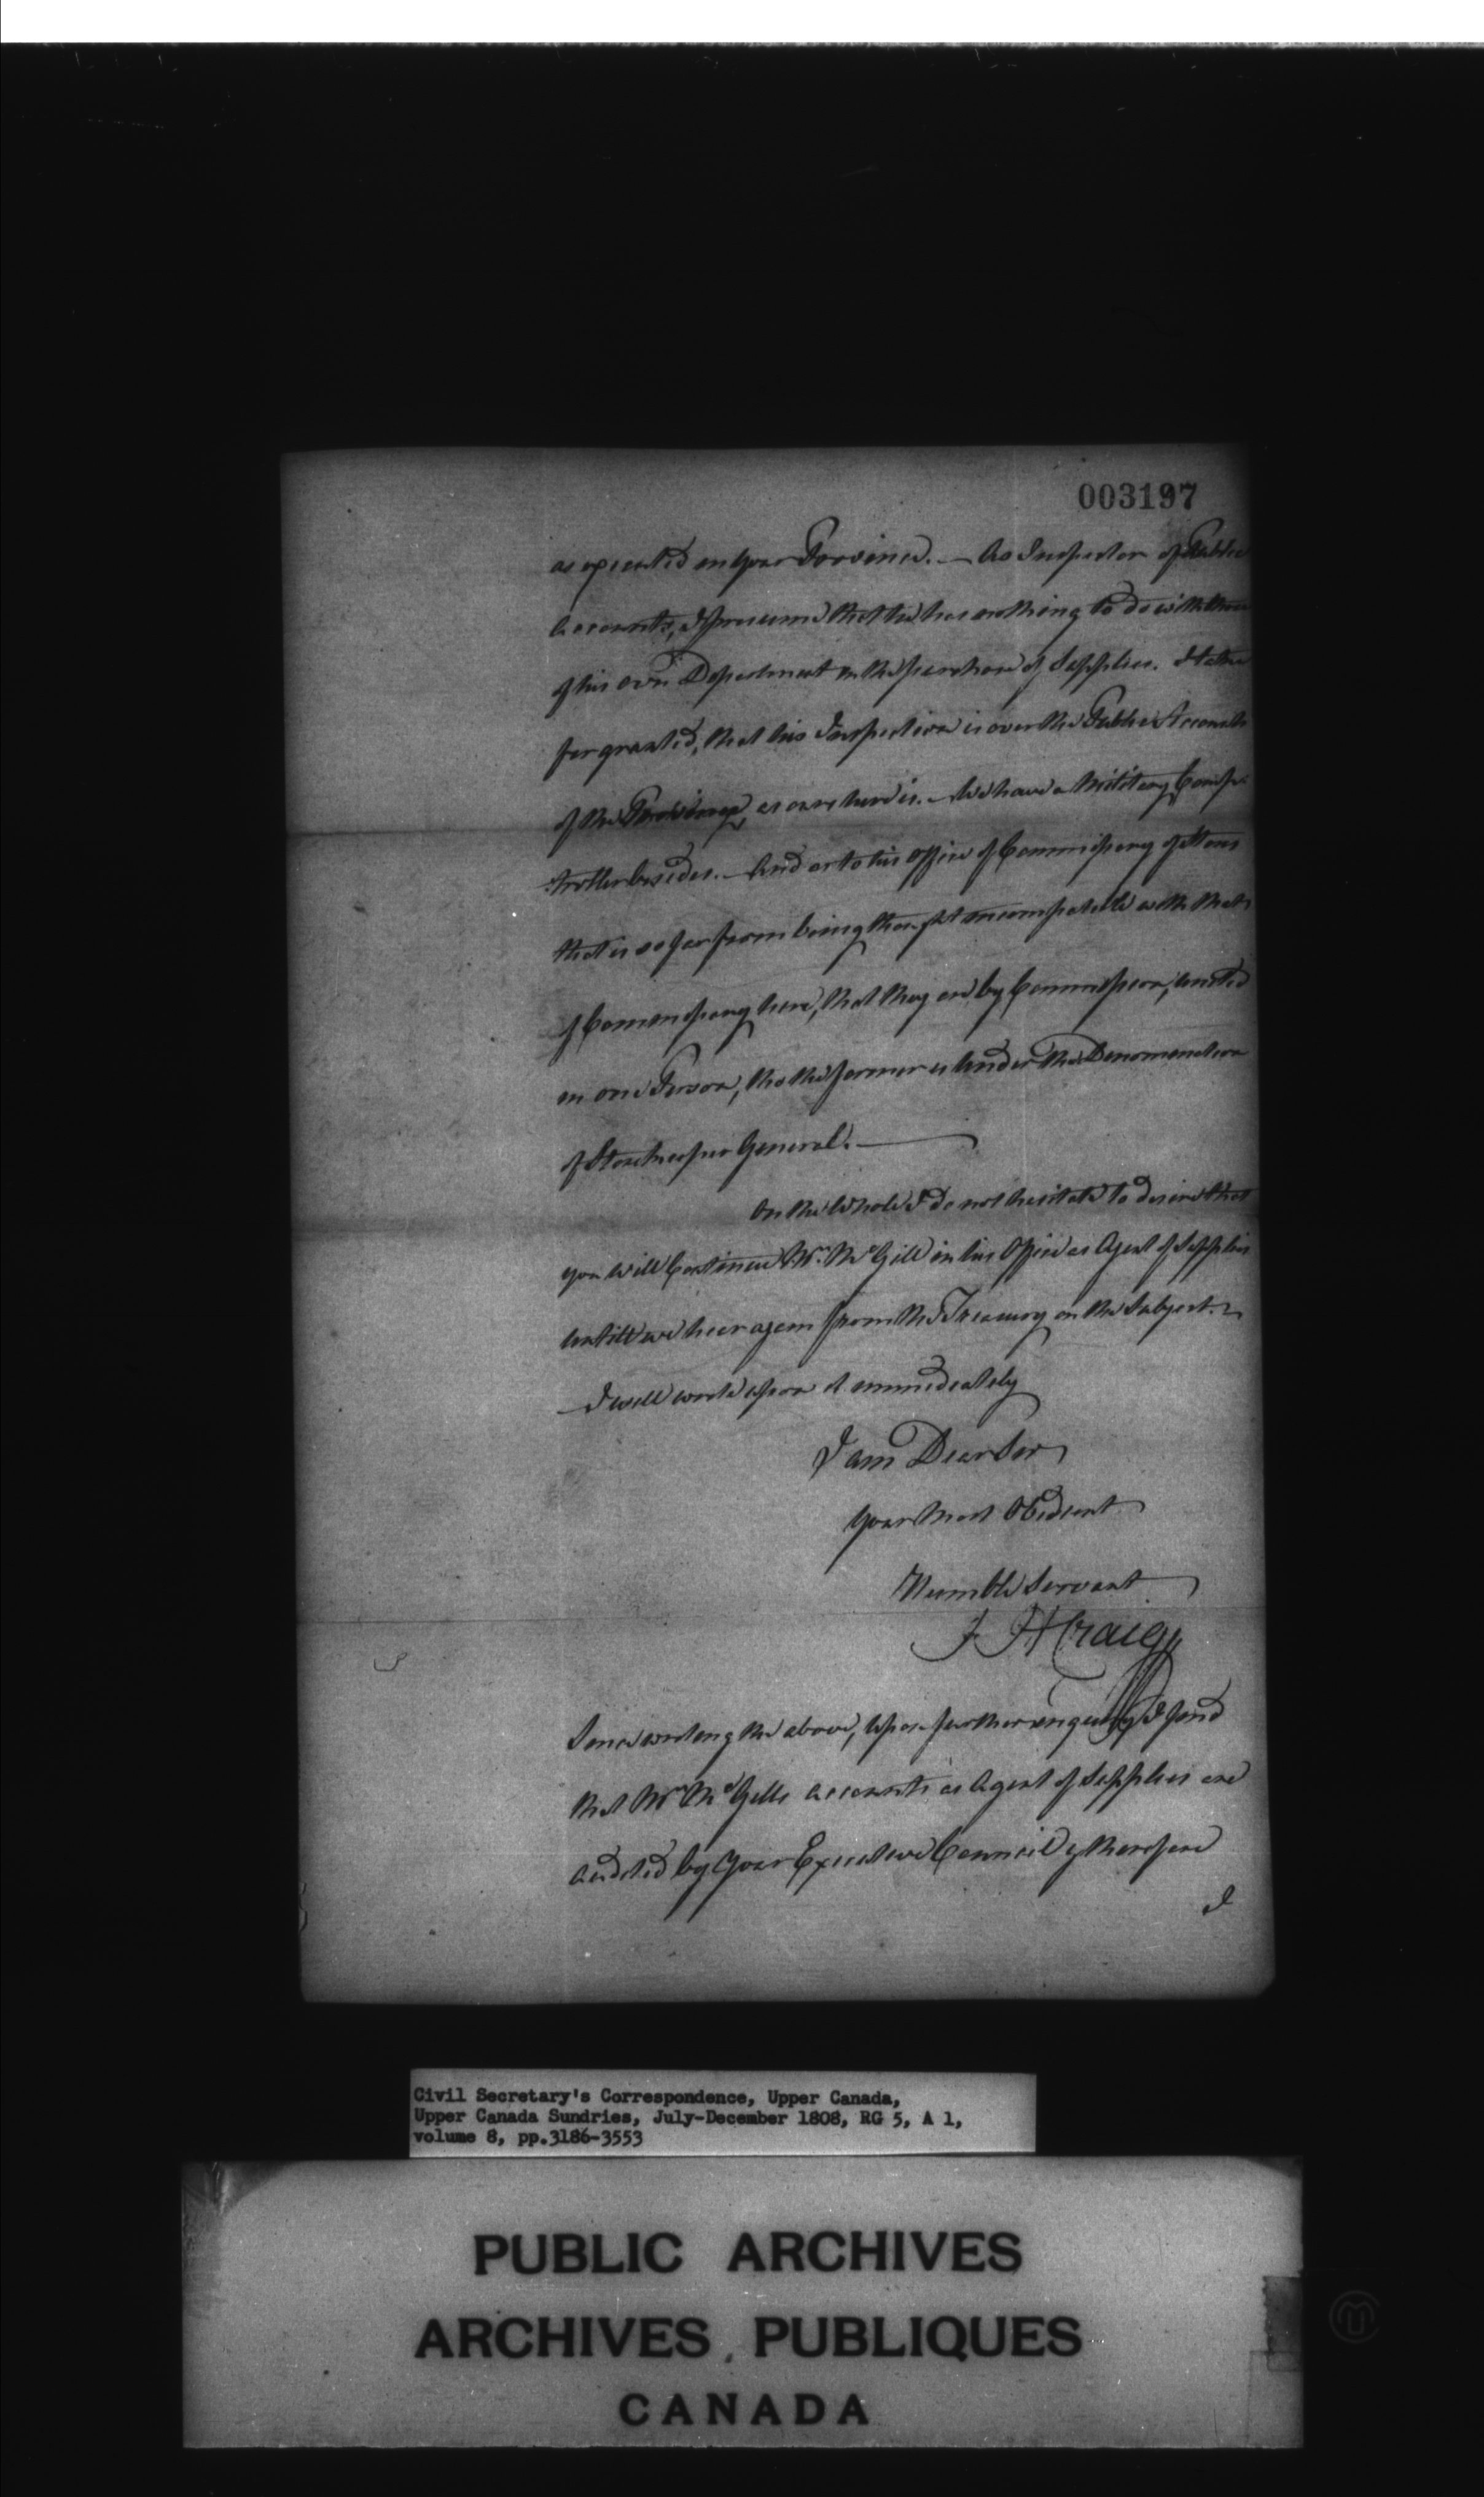 003197
as executed in your Province. — As Inspector of Public
Accounts, I presume that he has nothing to do with those
of his own Department in the purchase of Supplies. I take
for granted, that his Inspection is over the Public Accounts
of the Province, as ours here is. — We have a Military Comp-
-troller besides. — And as to his Office of Commissary of Stores
that is so far from being thought incompatible with that
of Commissary here, that they are by Commission, united
in one Person, tho the former is under the Denomination
of Storekeeper General. —
On the whole I do not hesitate to desire that
you will Continue Mr. McGill in his Office as Agent of Supplies
untill we hear again from the Treasury on the Subject. —
— I will write upon it immediately
I am Dear Sir
Your Most Obedient
Humble Servant
J H Craig
Since writing the above, upon further enquiry I find
that Mr McGills accounts as Agent of Supplies are
audited by your Executive Council & therefore
I
Civil Secretary's Correspondence, Upper Canada,
Upper Canada Sundries, July-December 1808, RG 5, A 1,
volume 8, pp.3186-3553
PUBLIC ARCHIVES
ARCHIVES PUBLIQUES
CANADA